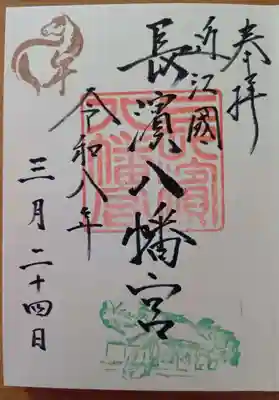 奉拝
近江國
長濱八幡宮
令和八年
三月二十四日
午
長濱八幡宮